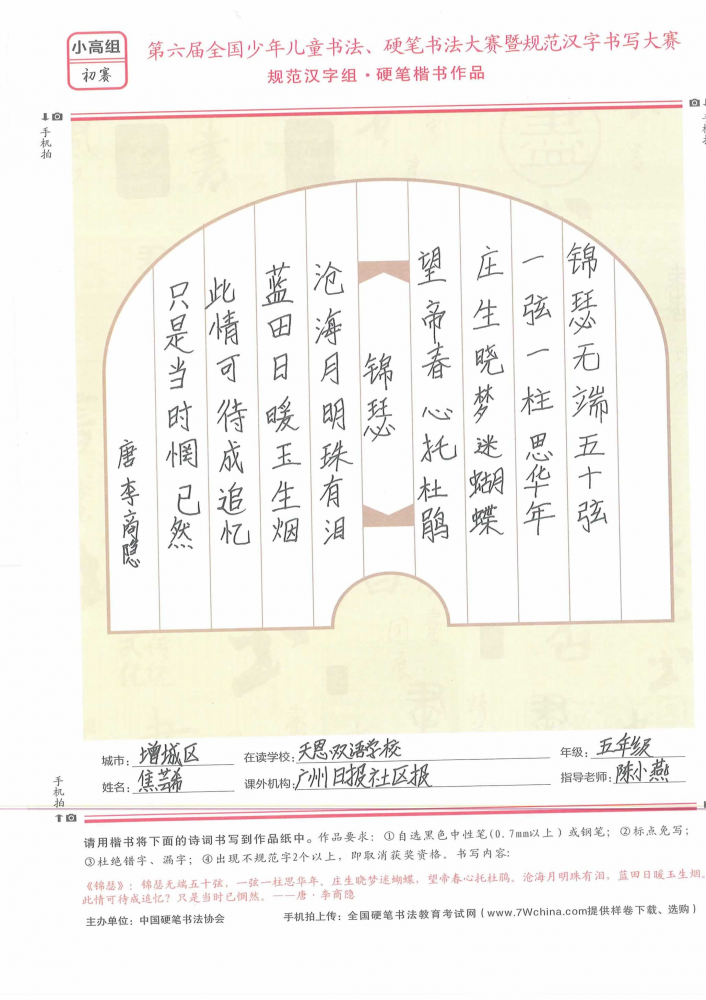 小高组
初赛
第六届全国少年儿童书法、硬笔书法大赛暨规范汉字书写大赛
规范汉字组·硬笔楷书作品
手机拍
锦瑟无端五十弦
一弦一柱思华年
庄生晓梦迷蝴蝶
望帝春心托杜鹃
锦瑟
沧海月明珠有泪
蓝田日暖玉生烟
此情可待成追忆
只是当时惘已然
唐李商隐
城市：增城区
在读学校：天恩双语学校
年级：五年级
姓名：焦芸希
课外机构：广州日报社区报
指导老师：陈小燕
手机拍
请用楷书将下面的诗词书写到作品纸中。作品要求：①自选黑色中性笔(0.7mm以上)或钢笔；②标点免写；
③杜绝错字、漏字；④出现不规范字2个以上，即取消获奖资格。书写内容：
《锦瑟》：锦瑟无端五十弦，一弦一柱思华年。庄生晓梦迷蝴蝶，望帝春心托杜鹃。沧海月明珠有泪，蓝田日暖玉生烟。
此情可待成追忆？只是当时已惘然。——唐·李商隐
主办单位：中国硬笔书法协会
手机拍上传：全国硬笔书法教育考试网（www.7Wchina.com提供样卷下载、选购）